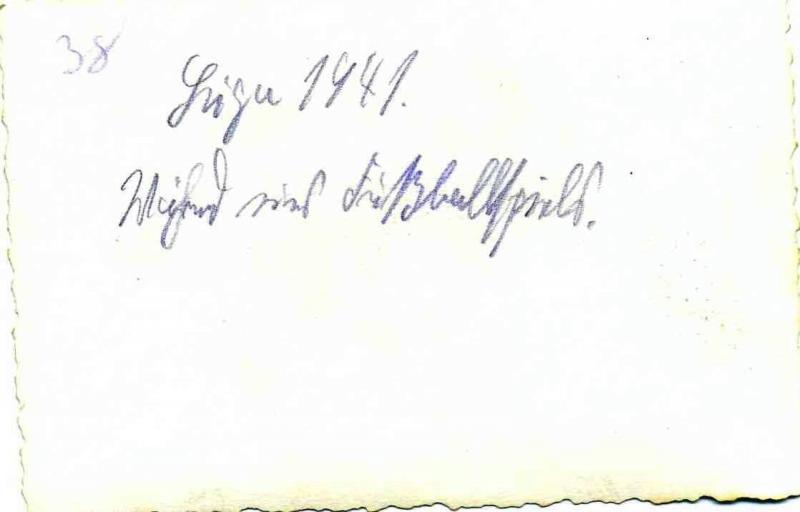 38
1941.
Während eines Fußballspiels.